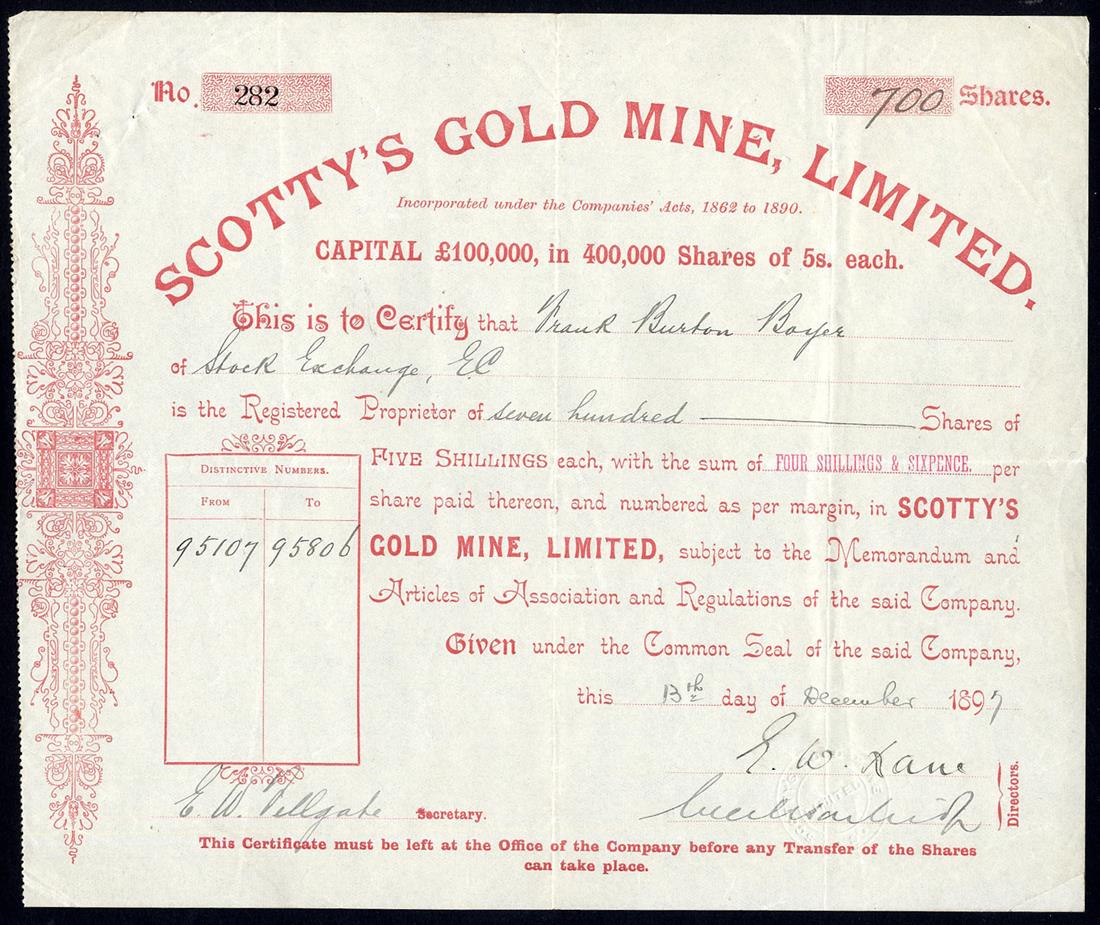 No. 282
700 Shares.
SCOTTY'S GOLD MINE, LIMITED.
Incorporated under the Companies' Acts, 1862 to 1890.
CAPITAL £100,000, in 400,000 Shares of 5s. each.
This is to Certify that Frank Burton Boyer
of Stock Exchange, E.C
is the Registered Proprietor of seven hundred Shares of
FIVE SHILLINGS each, with the sum of FOUR SHILLINGS & SIXPENCE. per
share paid thereon, and numbered as per margin, in SCOTTY'S
GOLD MINE, LIMITED, subject to the Memorandum and
Articles of Association and Regulations of the said Company.
DISTINCTIVE NUMBERS.
FROM TO
95107 95806
Given under the Common Seal of the said Company,
this 13th day of December 1897
E. W.
Directors.
E. W. Secretary.
This Certificate must be left at the Office of the Company before any Transfer of the Shares
can take place.